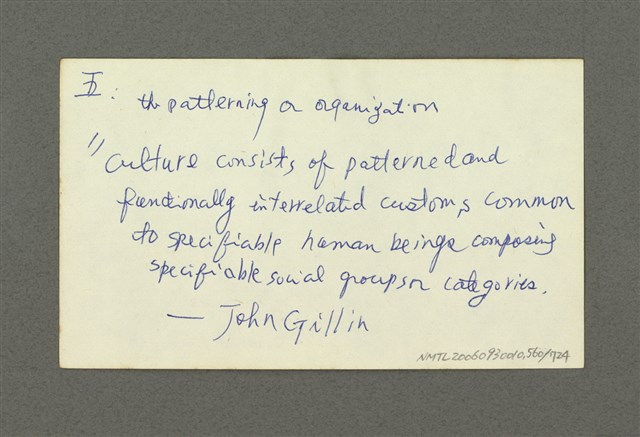 五: the patterning or organization
"Culture consists of patterned and
functionally interrelated customs common
to specifiable human beings composing
specifiable social groups or categories.
— John Gillin
NMTL20060930010,560/724